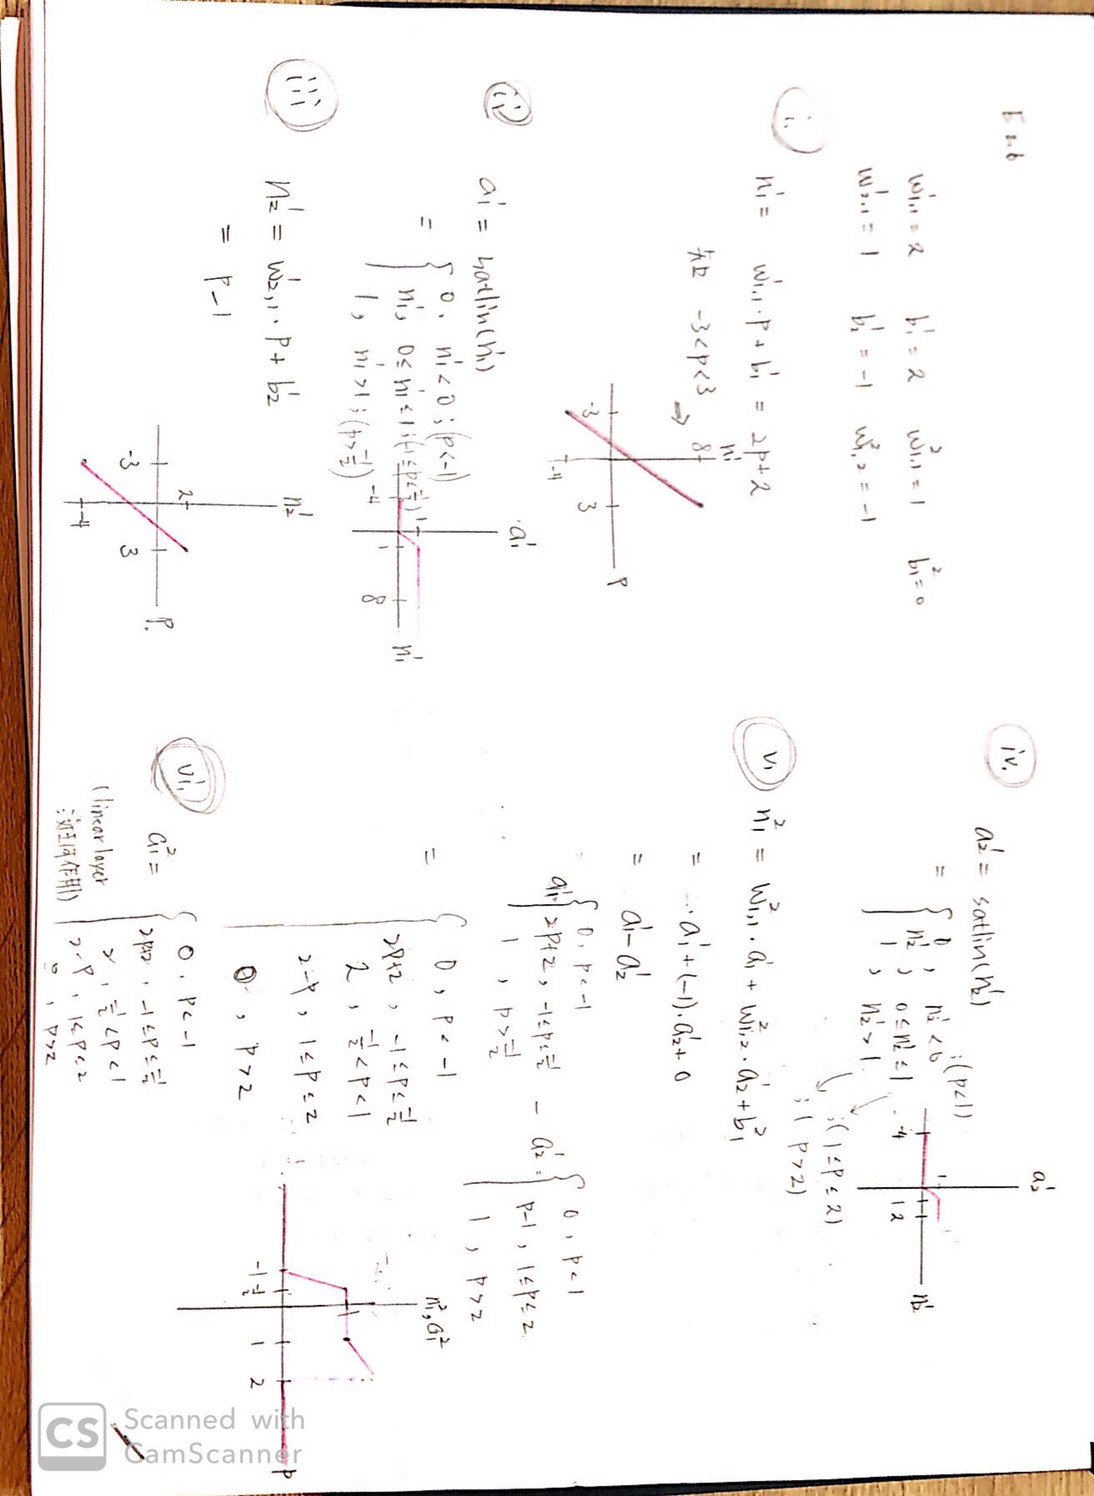 E2.6
w¹1,1 = 2 b¹1 = 2 w²1,1 = 1 b²1 = 0
w¹2,1 = 1 b¹2 = -1 w²1,2 = -1
i.
n¹1 = w¹1,1 · p + b¹1 = 2p+2
知 -3<p<3 ⇒
n¹1
8
-3 3 P
-4
ii
a¹1 = satlin(n¹1)
= { 0, n¹1<0 ; (p<-1)
n¹1, 0≤n¹1≤1 ; (-1≤p≤-1/2)
1, n¹1>1 ; (p>-1/2)
a¹1
1
-4 1 8 n¹1
iii
n¹2 = w¹2,1 · P + b¹2
= P-1
n¹2
2
-3 3 P.
-4
iv.
a¹2 = satlin(n¹2)
= { 0, n¹2<0 ; (p<1)
n¹2, 0≤n¹2≤1
1, n¹2>1
; (1≤P≤2)
; (P>2)
a¹2
1
-4 1 2 n¹2
vi
n²1 = w²1,1 · a¹1 + w²1,2 · a¹2 + b²1
= a¹1 + (-1) · a¹2 + 0
= a¹1 - a¹2
a¹1 { 0, P<-1
2P+2, -1≤P≤-1/2
1, P>-1/2
- a¹2 = { 0, P<1
P-1, 1≤P≤2
1, P>2
= { 0, P<-1
2P+2, -1≤P≤-1/2
2, -1/2<P<1
2-P, 1≤P≤2
0, P>2
n²1, a²1
1
-1 -1/2 1 2 P
vii.
a²1 = { 0, P<-1
2P+2, -1≤P≤-1/2
2, -1/2<P<1
2-P, 1≤P≤2
0, P>2
(linear layer
沒任何作用)
CS Scanned with
CamScanner